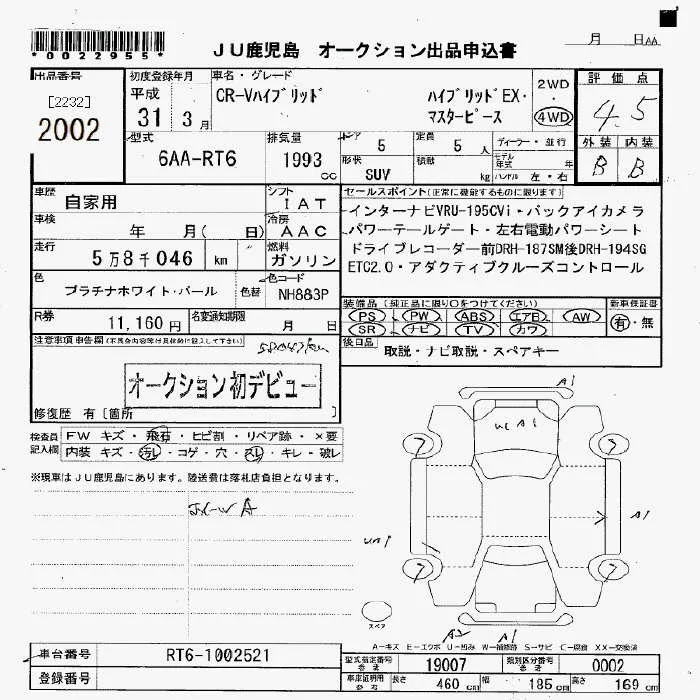 *0022955*
JU鹿児島 オークション出品申込書
月 日AA
出品番号
[2232]
2002
初度登録年月
平成
31 3月
車名・グレード
CR-Vハイブリッド ハイブリッドEX・
マスターピース
2WD
・
4WD
評価点
4.5
外装 内装
B B
型式
6AA-RT6
排気量
1993 cc
ドア
5
定員
5人
形状
SUV
積載
kg
ディーラー・並行
モデル年式 年
ハンドル 左・右
車歴
自家用
シフト
IAT
車検
年 月( 日)
冷房
AAC
走行
5万8千046 km
燃料
ガソリン
色
プラチナホワイト・パール
色替
色コード
NH883P
R券
11,160円
名変通知期限
月 日
セールスポイント(正常に機能するものに限ります)
インターナビVRU-195CVi・バックアイカメラ
パワーテールゲート・左右電動パワーシート
ドライブレコーダー前DRH-187SM後DRH-194SG
ETC2.0・アダクティブクルーズコントロール
装備品(純正品に限り○をつけてください)
PS PW ABS エアB AW
SR ナビ TV カワ
新車保証書
有・無
後日品
取説・ナビ取説・スペアキー
注意事項申告欄(不具合内容等は具体的に記入して下さい)
58047km
オークション初デビュー
修復歴 有[箇所 ]
検査員
記入欄
FW キズ・飛石・ヒビ割・リペア跡・×要
内装 キズ・汚レ・コゲ・穴・スレ・キレ・破レ
※現車はJU鹿児島にあります。陸送費は落札店負担となります。
A1
A1
7 7
A1
7 7
スペア
A2
A-キズ E-エクボ U-凹み W-補修跡 S-サビ C-腐食 XX-交換済
車台番号
RT6-1002521
登録番号
型式指定番号
参考
19007
類別区分番号
参考
0002
車庫証明用
参考
長さ 460cm 幅 185cm 高さ 169cm